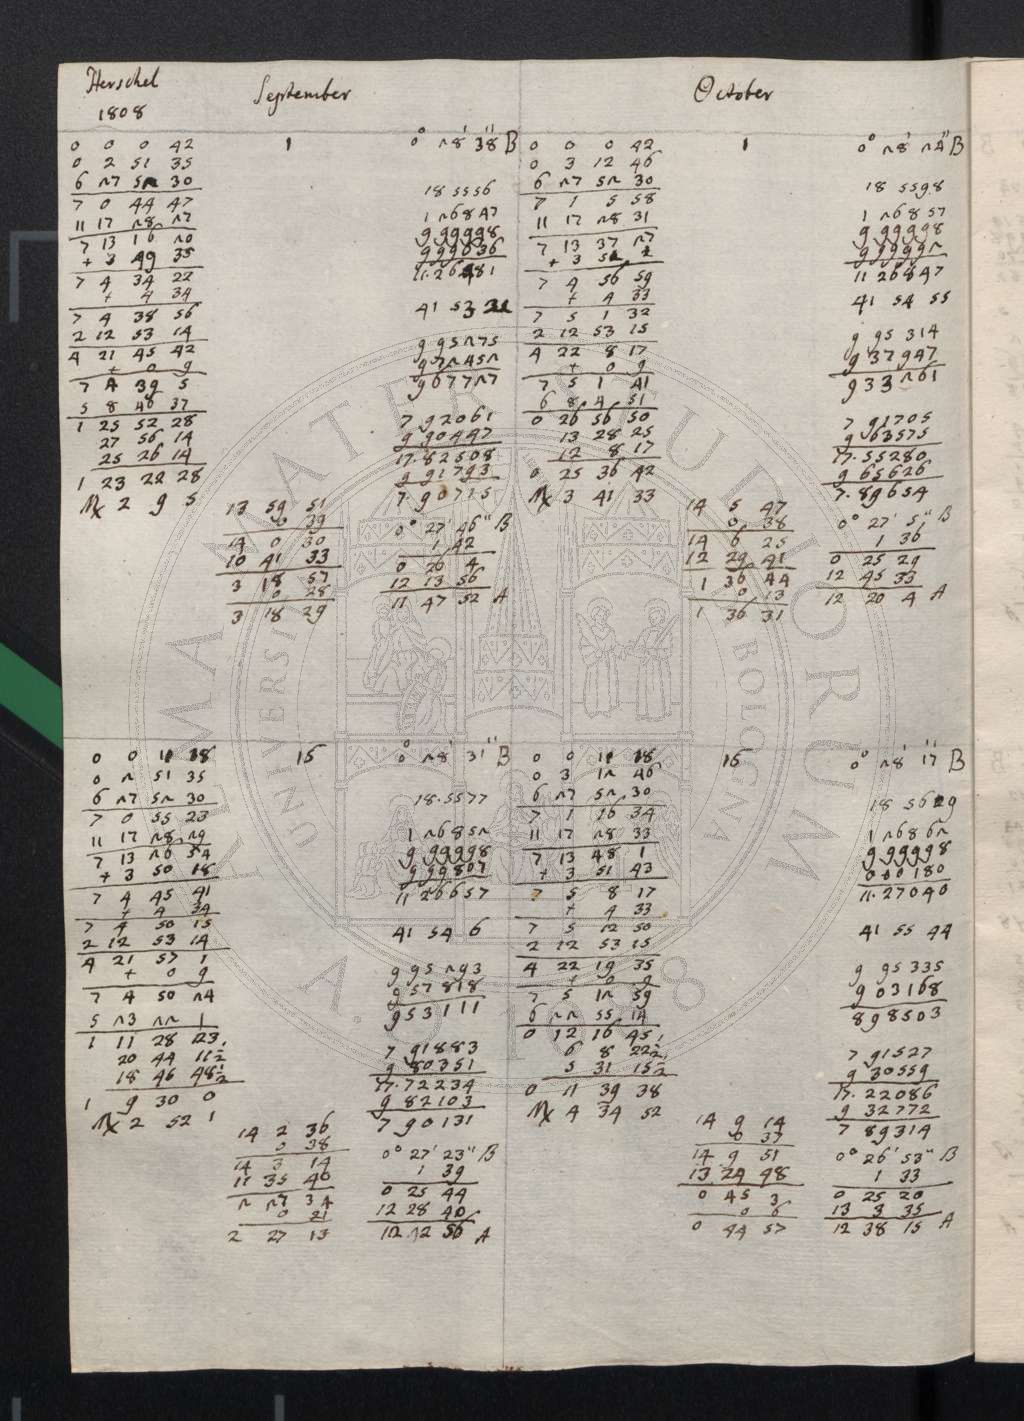 Herschel
1808
September
October
0 0 0 42
0 2 51 35
6 27 52 30
7 0 44 47
11 17 28 27
7 13 16 20
+ 3 49 35
7 4 34 22
+ 4 34
7 4 38 56
2 12 53 14
4 21 45 42
+ 0 9
7 4 39 5
5 8 46 37
1 25 52 28
27 56 14
25 26 14
1 23 22 28
2 9 5
1
13 59 51
0 39
14 0 30
10 41 33
3 18 57
0 28
3 18 29
0° 28' 38" B
18 5556
1 26847
999998
999636
11.26481
41 53
995275
972452
967727
7 92061
990447
17.82508
991793
7.90715
0° 27' 46" B
1 42
0 26 4
12 13 56
11 47 52 A
0 0 0 42
0 3 12 46
6 27 52 30
7 1 5 58
11 17 28 31
7 13 37 27
+ 3 52
7 4 56 59
+ 4 33
7 5 1 32
2 12 53 15
4 22 8 17
+ 0 9
7 5 1 41
6 8 4 51
0 26 56 50
13 28 25
12 8 17
0 25 36 42
3 41 33
1
14 5 47
0 38
14 6 25
12 29 41
1 36 44
0 13
1 36 31
0° 28' 24" B
18 5598
1 26857
999998
999992
11 26847
41 54 55
9 95 314
9 37947
933261
7 91705
9 63575
17.55280
9 65626
7.89654
0° 27' 5" B
1 36
0 25 29
12 45 33
12 20 4 A
0 0 11 18
0 2 51 35
6 27 52 30
7 0 55 23
11 17 28 29
7 13 26 54
+ 3 50 18
7 4 45 41
+ 4 34
7 4 50 15
2 12 53 14
4 21 57 1
+ 0 9
7 4 50 24
5 23 22 1
1 11 28 23
20 44 11½
18 46 48½
1 9 30 0
2 52 1
15
14 2 36
0 38
14 3 14
11 35 40
2 27 34
0 21
2 27 13
0° 28' 31" B
18.5577
1 26852
999998
999807
11 26657
41 54 6
995293
957818
953111
7 91883
9 80351
17.72234
9 82103
7 90131
0° 27' 23" B
1 39
0 25 44
12 28 40
12 2 56 A
0 0 11 18
0 3 12 46
6 27 52 30
7 1 16 34
11 17 28 33
7 13 48 1
+ 3 51 43
7 5 8 17
+ 4 33
7 5 12 50
2 12 53 15
4 22 19 35
+ 0 9
7 5 12 59
6 22 55 14
0 12 16 45
6 8 22½
5 31 15½
0 11 39 38
4 34 52
15
14 9 14
0 37
14 9 51
13 24 48
0 45 3
0 6
0 44 57
0° 28' 17" B
18 5629
1 26862
999998
000180
11.27040
41 55 44
9 95335
903168
898503
7 91527
9 30559
17.22086
9 32772
7 89314
0° 26' 53" B
1 33
0 25 20
13 3 35
12 38 15 A
ALMA MATER STUDIORUM
UNIVERSITÀ
BOLOGNA
A.D. 1088